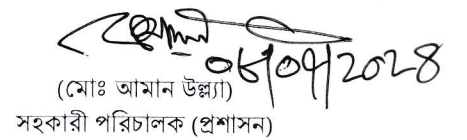 ০৮/০৭/২০২৪
(মোঃ আমান উল্ল্যা)
সহকারী পরিচালক (প্রশাসন)